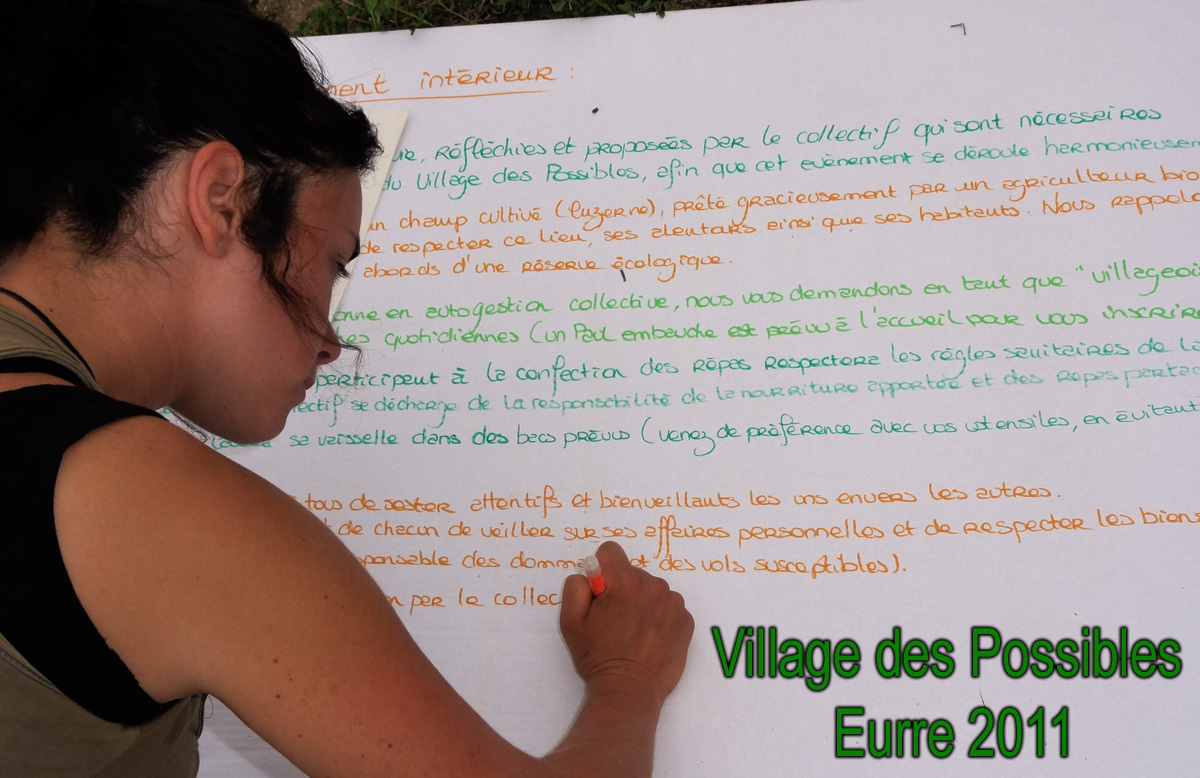 ment intérieur :
ure, Réfléchies et proposées par le collectif qui sont nécessaires
du Village des Possibles, afin que cet evènement se déroule harmonieusem
un champ cultivé (luzerne), prêté gracieusement par un agriculteur bio
de respecter ce lieu, ses alentours ainsi que ses habitants. Nous rappelo
abords d'une réserve écologique.
onne en autogestion collective, nous vous demandons en tant que "villageoi
es quotidiennes (un Paul embauche est prévu à l'accueil pour vous inscrire
participent à la confection des Repas Respectera les règles sanitaires de la
lectif se décharge de la responsabilité de la nourriture apportée et des repas partag
sa vaisselle dans des bacs prévus (venez de préférence avec vos ustensiles, en évitant
tous de rester attentifs et bienveillants les uns envers les autres.
de chacun de veiller sur ses affaires personnelles et de respecter les biens
ponsable des domma et des vols susceptibles).
n par le collec
Village des Possibles
Eurre 2011